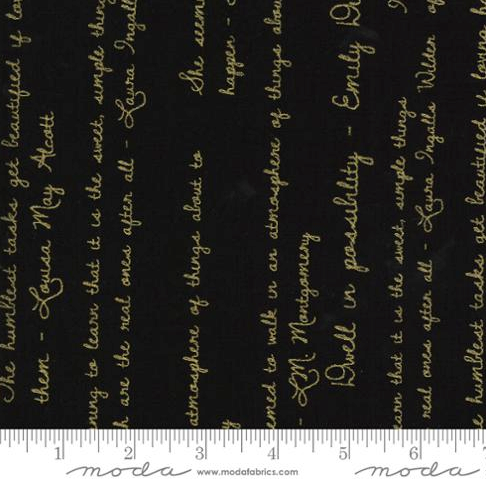 The humblest tasks get beautified if lo
them - Louisa May Alcott
ning to learn that it is the sweet, simple thin
h are the real ones after all - Laura Ingall
atmosphere of things about to
She seem
happen -
y
emed to walk in an atmosphere of things abou
- L.M. Montgomery
Dwell in possibility - Emily Di
earn that it is the sweet, simple things
real ones after all - Laura Ingalls Wilder
e humblest tasks get beautified if loving h
1 2 3 4 5 6 7
moda www.modafabrics.com moda moda